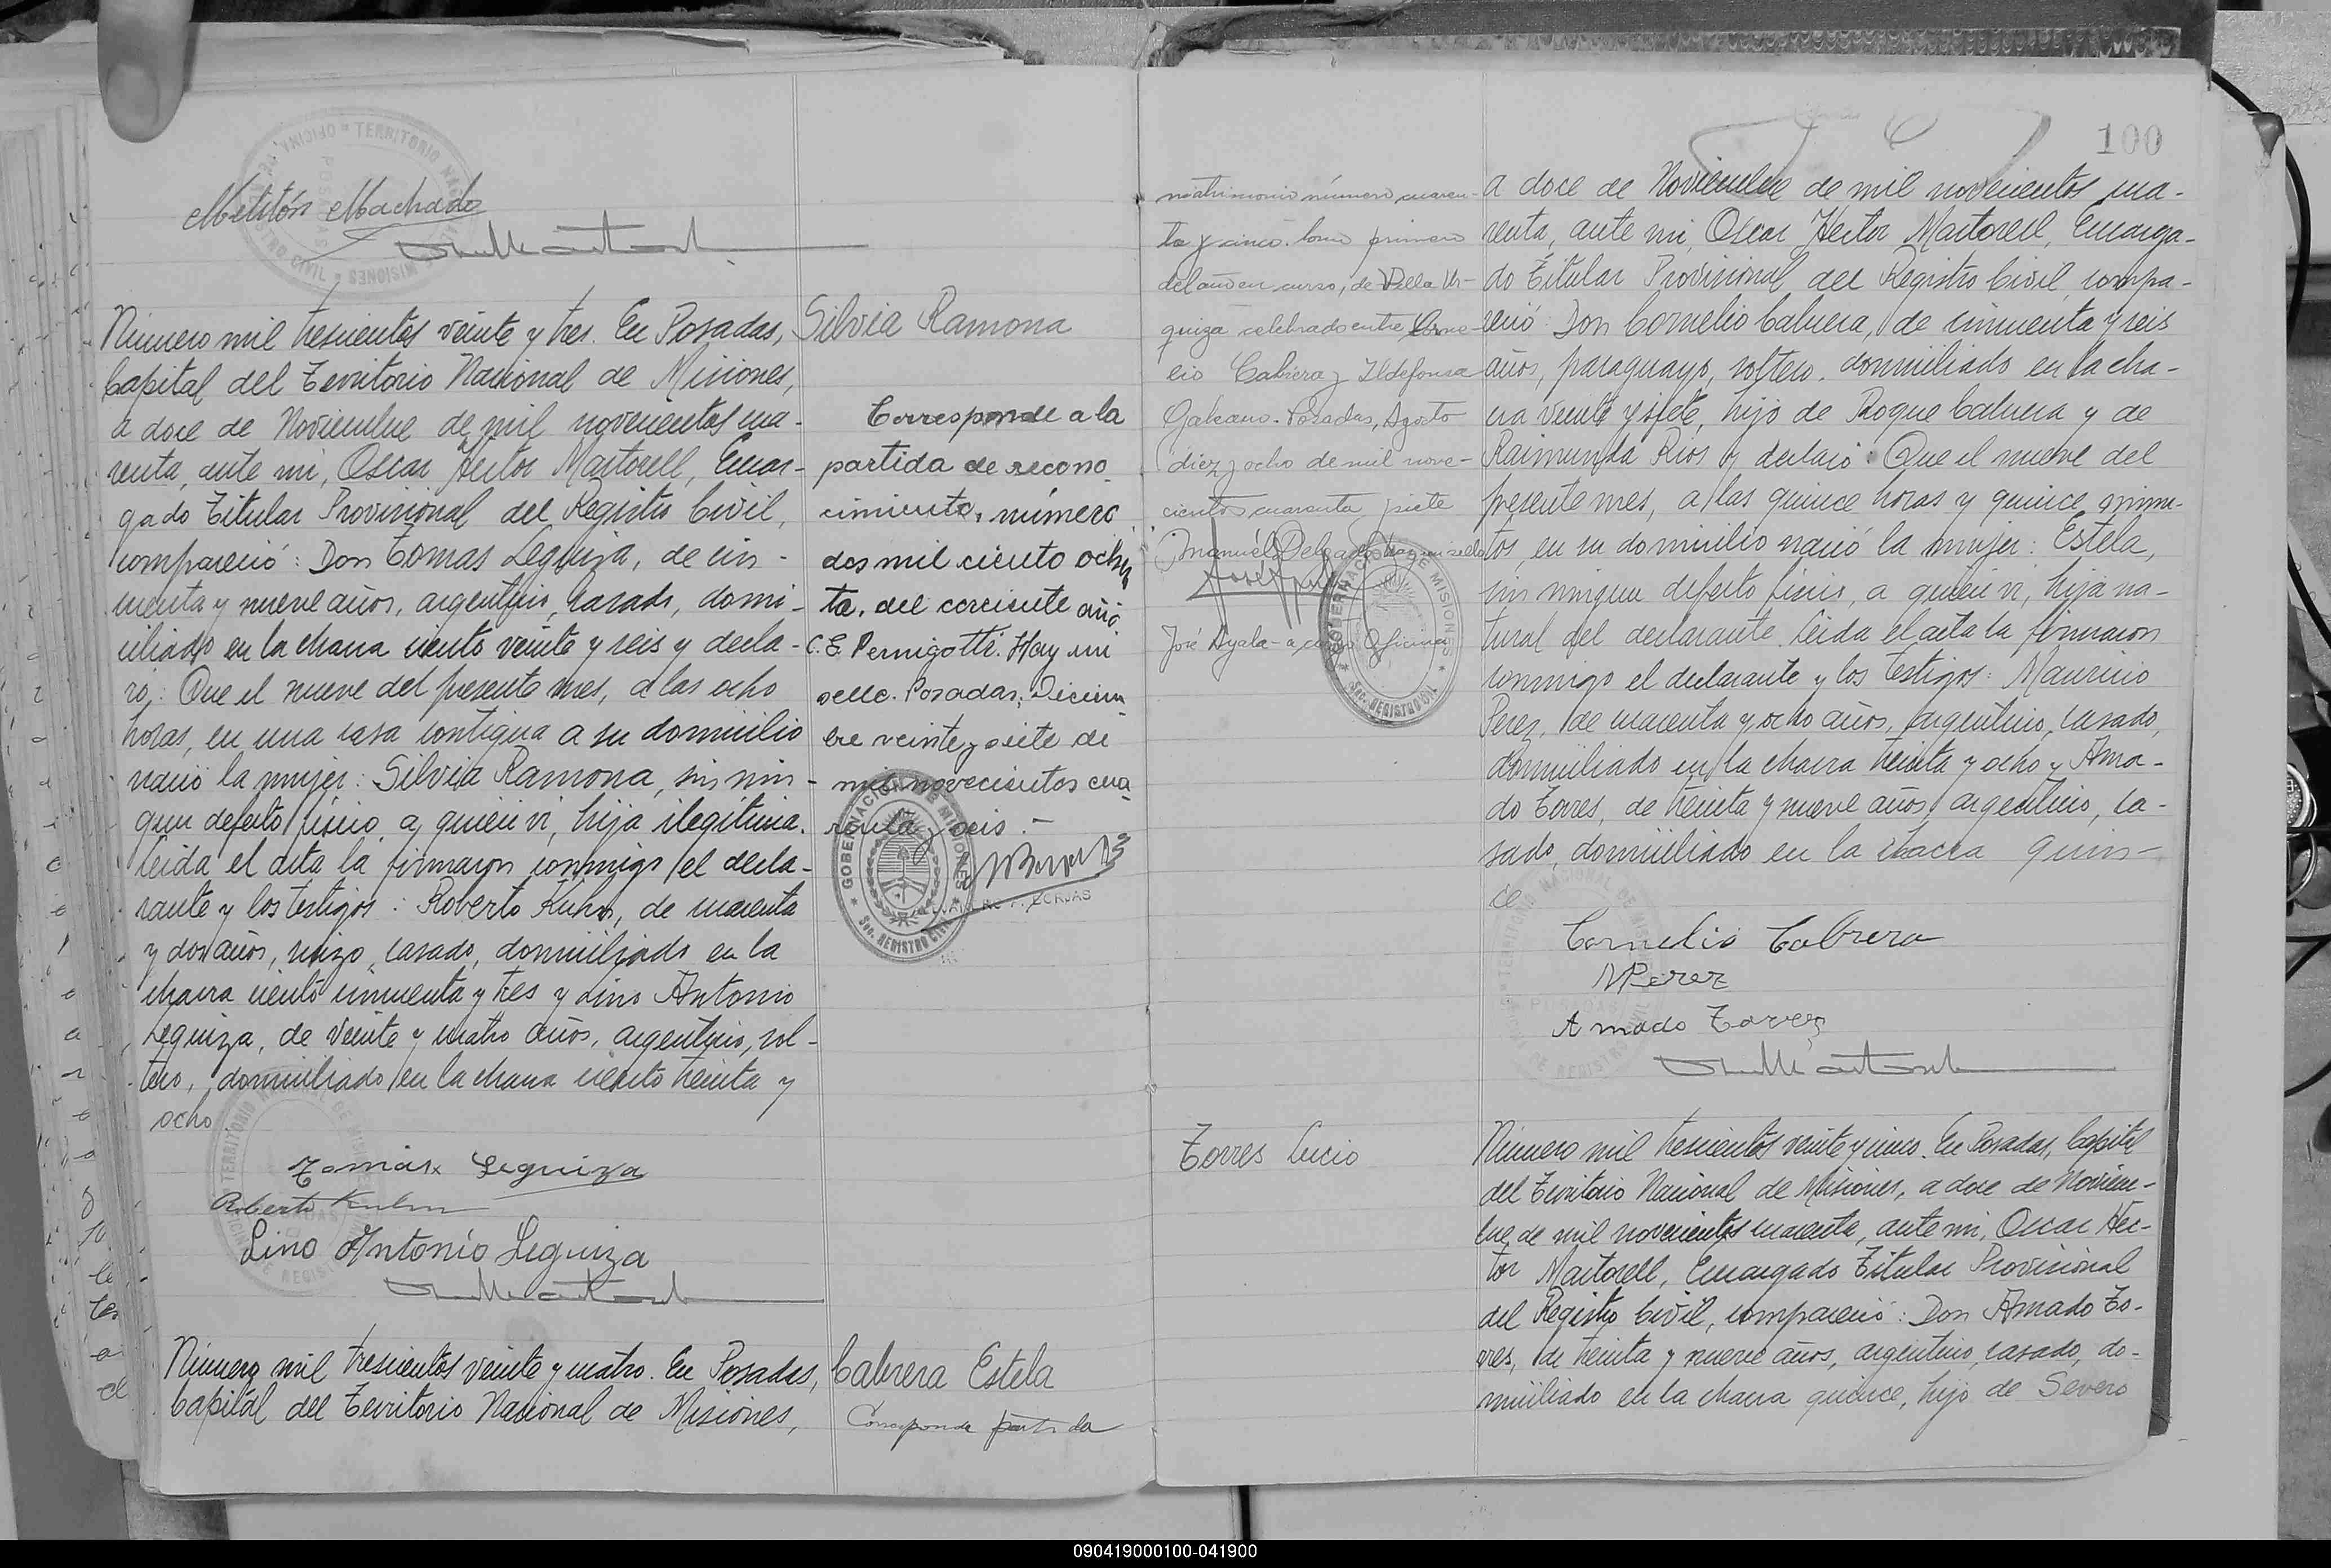 Melitón Machado
Número mil trescientos veinte y tres. En Posadas,
Capital del Territorio Nacional de Misiones,
a doce de Noviembre de mil novecientos cua-
renta, ante mi, Oscar Hector Martorell, Encar-
gado Titular Provisional del Registro Civil,
compareció: Don Tomas Leguiza, de cin-
cuenta y nueve años, argentino, casado, domi-
ciliado en la chacra ciento veinte y seis y decla-
ró: Que el nueve del presente mes, a las ocho
horas, en una casa contigua a su domicilio
nació la mujer: Silvia Ramona, sin nin-
gun defecto físico, a quien vi, hija ilegitima.
Leida el acta la firmaron conmigo el decla-
rante y los testigos: Roberto Kuhn, de cuarenta
y dos años, suizo, casado, domiciliado en la
chacra ciento cincuenta y tres y Lino Antonio
Leguiza, de veinte y cuatro años, argentino, sol-
tero, domiciliado en la chacra ciento treinta y
ocho.
Tomás Leguiza
Roberto Kuhn
Lino Antonio Leguiza
Silvia Ramona
Corresponde a la
partida de recono
cimiento, número
dos mil ciento ochen
ta, del corriente año
C. E. Pernigotti. Hay un
sello. Posadas, Diciem
bre veinte y siete de
mil novecientos cua
renta y seis.-
GOBERNACION DE MISIONES
Sec. REGISTRO CIVIL
BORJAS
Número mil trescientos veinte y cuatro. En Posadas,
Capital del Territorio Nacional de Misiones,
Cabrera Estela
Corresponde partida
100
matrimonio número cuaren-
ta y cinco. tomo primero
del año en curso, de Villa Ur-
quiza celebrado entre Corne-
lio Cabrera y Ildefonsa
Galeano. Posadas, Agosto
diez y ocho de mil nove-
cientos cuarenta y siete
Manuél Delgado hay un sello
José Ayala - a cargo Oficina
GOBERNACION DE MISIONES
Sec. REGISTRO CIVIL
a doce de Noviembre de mil novecientos cua-
renta, ante mi, Oscar Hector Martorell, Encarga-
do Titular Provisional del Registro Civil, compa-
reció: Don Cornelio Cabrera, de cincuenta y seis
años, paraguayo, soltero, domiciliado en la cha-
cra veinte y siete, hijo de Roque Cabrera y de
Raimunda Rios y declaró: Que el nueve del
presente mes, a las quince horas y quince minu-
tos, en su domicilio nació la mujer: Estela,
sin ningun defecto físico, a quien vi, hija na-
tural del declarante. Leida el acta la firmaron
conmigo el declarante y los testigos: Mauricio
Perez, de cuarenta y ocho años, argentino, casado,
domiciliado en la chacra treinta y ocho y Ama-
do Torres, de treinta y nueve años, argentino, ca-
sado, domiciliado en la chacra quin-
ce
Cornelio Cabrera
M Perez
Amado Torres
Torres Lucio
Número mil trescientos veinte y cinco. En Posadas, Capital
del Territorio Nacional de Misiones, a doce de Noviem-
bre de mil novecientos cuarenta, ante mi, Oscar Hec-
tor Martorell, Encargado Titular Provisional
del Registro Civil, compareció: Don Amado To-
rres, de treinta y nueve años, argentino, casado, do-
miciliado en la chacra quince, hijo de Severo
090419000100-041900